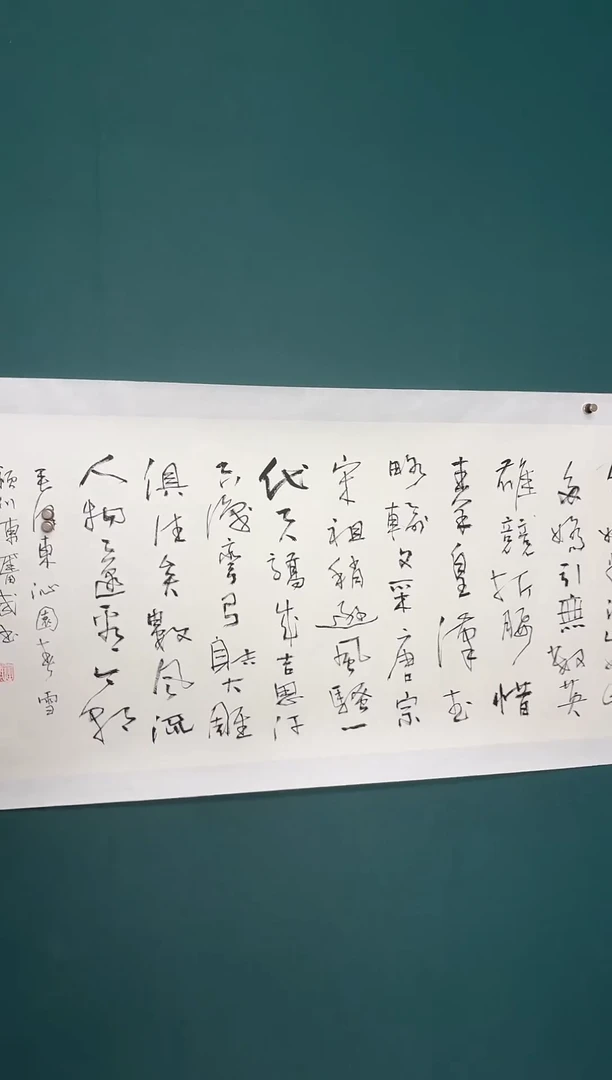 江山如此
多嬌引無數英
雄競折腰惜
秦皇漢武
略輸文采唐宗
宋祖稍遜風騷一
代天驕成吉思汗
只識彎弓射大雕
俱往矣數風流
人物還看今朝
毛澤東沁園春雪